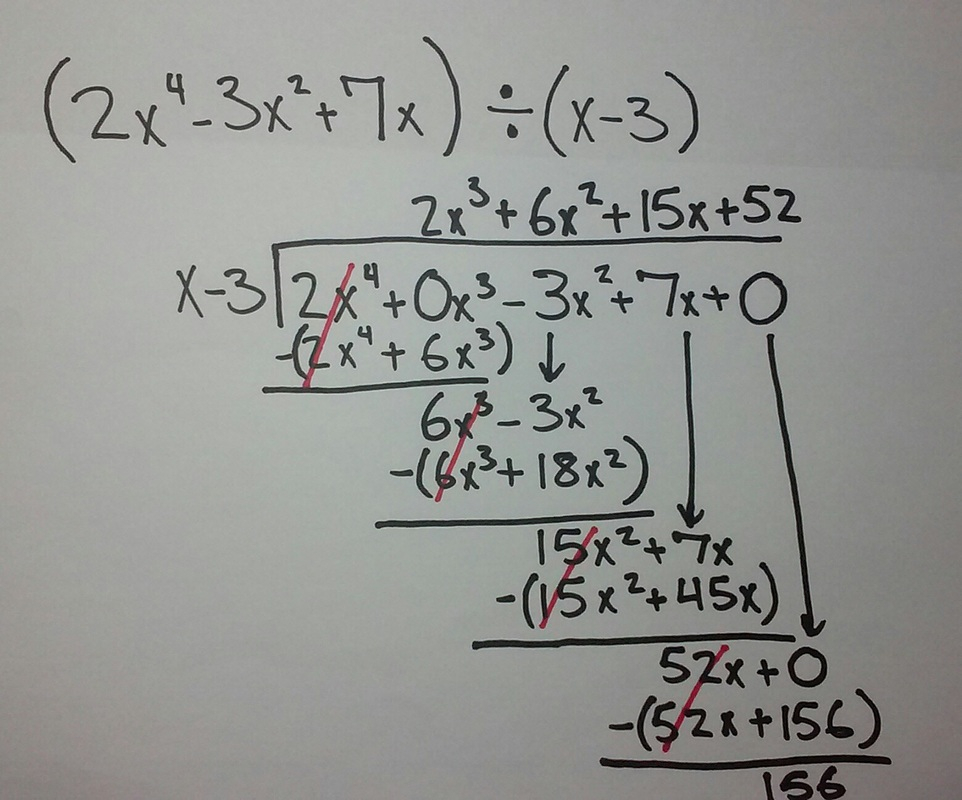 (2x⁴-3x²+7x)÷(x-3)
2x³+6x²+15x+52
x-3 2x⁴+0x³-3x²+7x+0
-(2x⁴+6x³)
6x³-3x²
-(6x³+18x²)
15x²+7x
-(15x²+45x)
52x+0
-(52x+156)
156